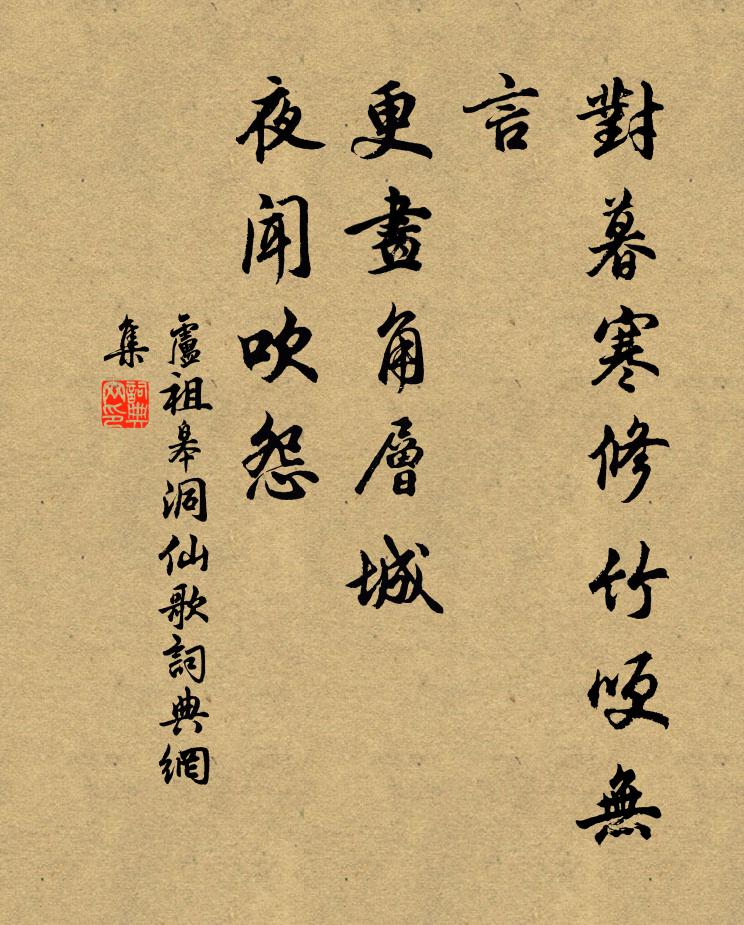 對暮寒修竹哽無
言
更畫角層城
夜聞吹怨
盧祖皋洞仙歌詞典網
集
詞典
网印